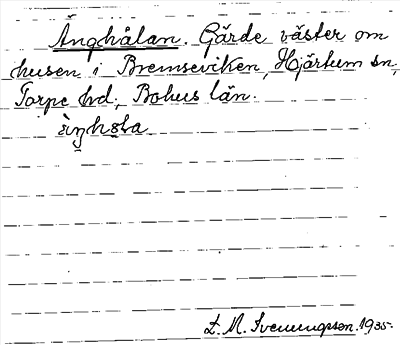 Änghålan. Gärde väster om
husen i Bremseviken, Hjärtum sn,
Torpe hd., Bohus län.
L. M. Svenungsson. 1935.